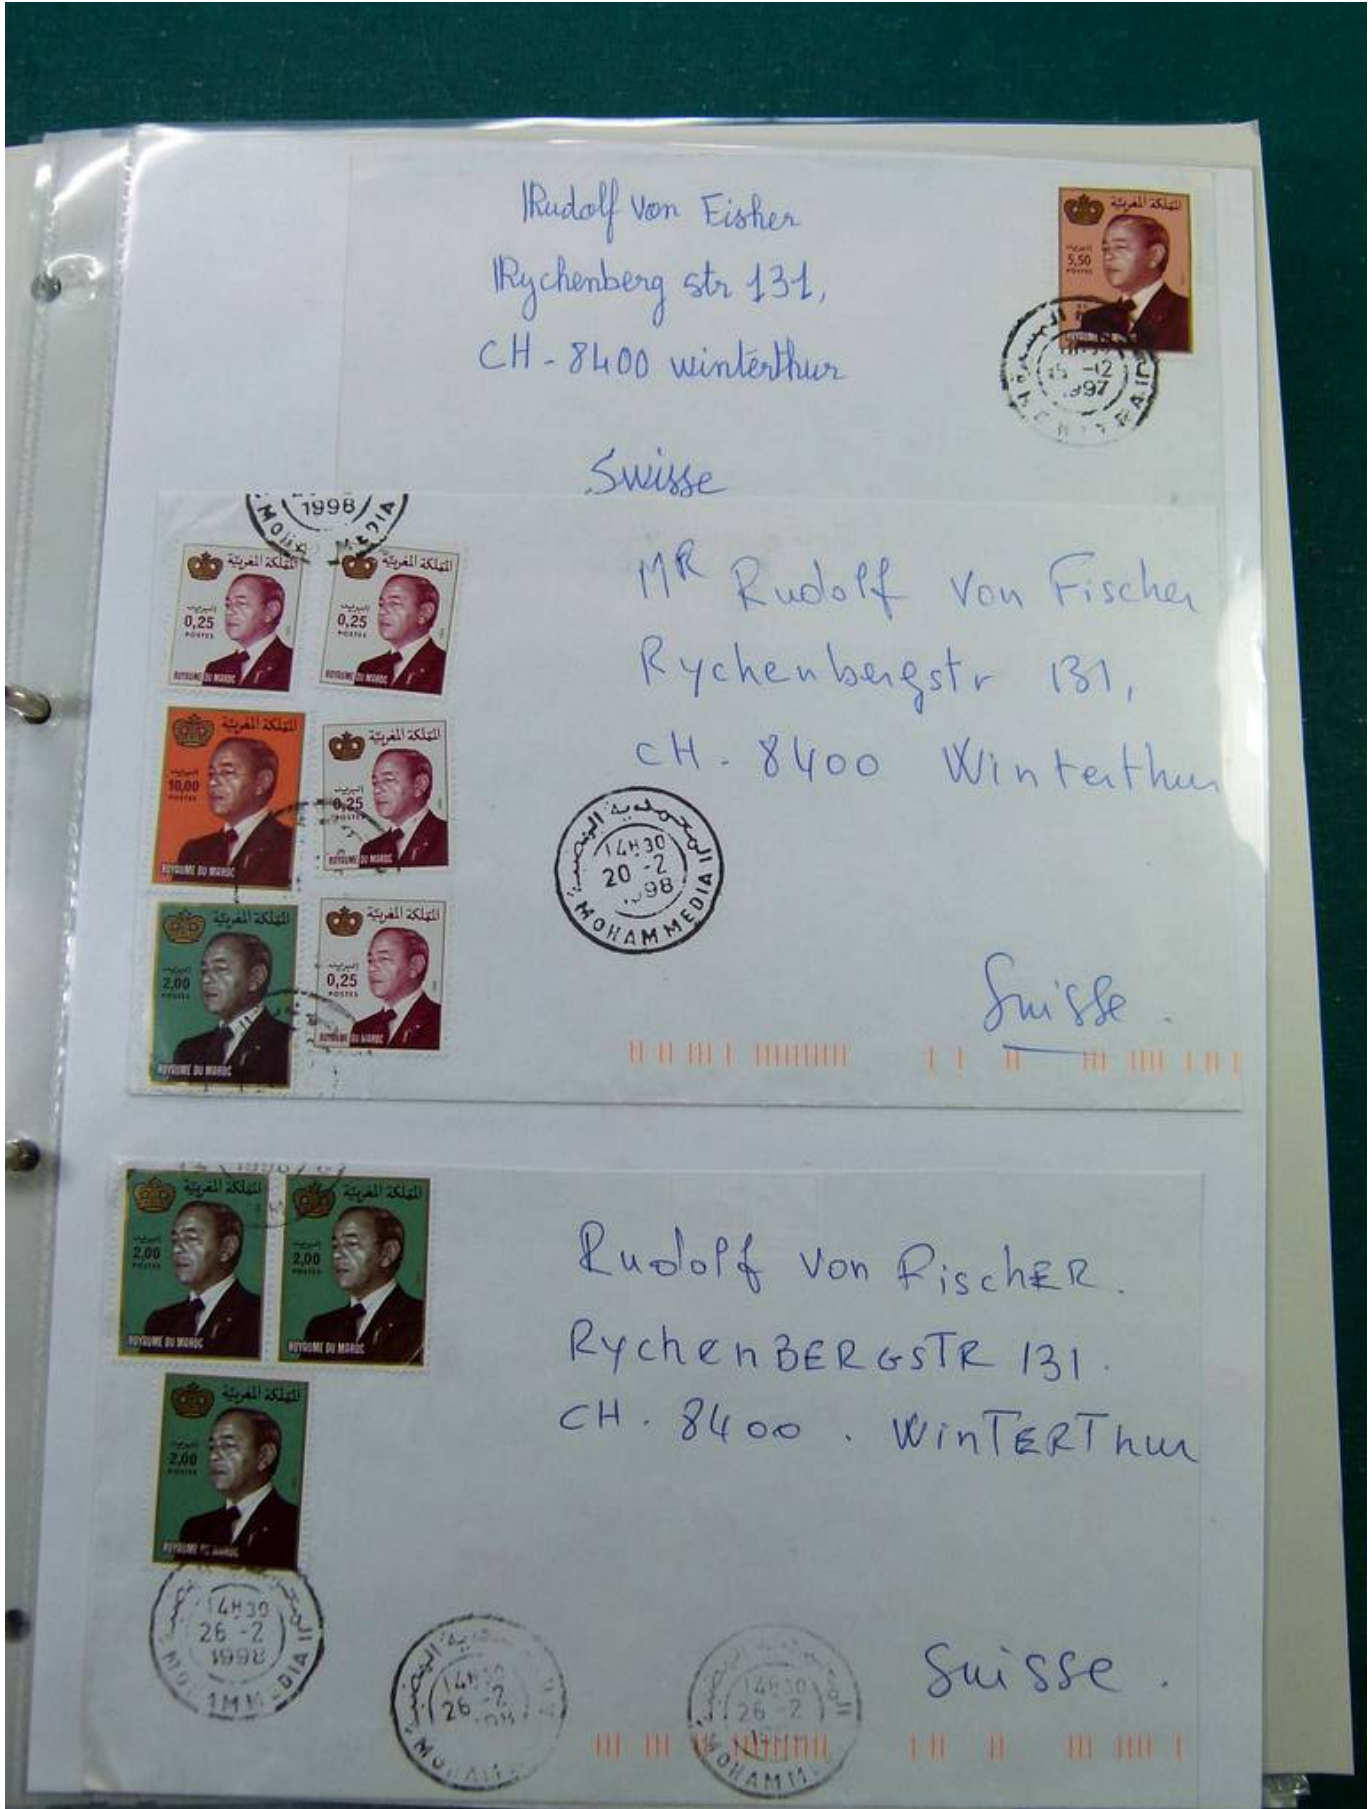 Rudolf Von Eisher
Rychenberg str 131,
CH - 8400 winterthur
Swisse
المملكة المغربية
5,50
POSTES
15 -12
1997
KENITRA
1998
MOHAMMEDIA
المملكة المغربية
0,25
POSTES
ROYAUME DU MAROC
المملكة المغربية
0,25
POSTES
ROYAUME DU MAROC
المملكة المغربية
10,00
POSTES
ROYAUME DU MAROC
المملكة المغربية
0,25
POSTES
ROYAUME DU MAROC
المملكة المغربية
2,00
POSTES
ROYAUME DU MAROC
المملكة المغربية
0,25
POSTES
ROYAUME DU MAROC
MR Rudolf Von Fischer
Rychenbergstr 131,
CH - 8400 Winterthur
14H30
20 -2
1998
MOHAMMEDIA
Suisse.
المملكة المغربية
2,00
POSTES
ROYAUME DU MAROC
المملكة المغربية
2,00
POSTES
ROYAUME DU MAROC
المملكة المغربية
2,00
POSTES
ROYAUME DU MAROC
Rudolf Von FischER.
RychenBERGSTR 131.
CH. 8400. WinTERThur
14H30
26 -2
1998
MOHAMMEDIA
14H30
26 -2
14H30
26 -2
Suisse.